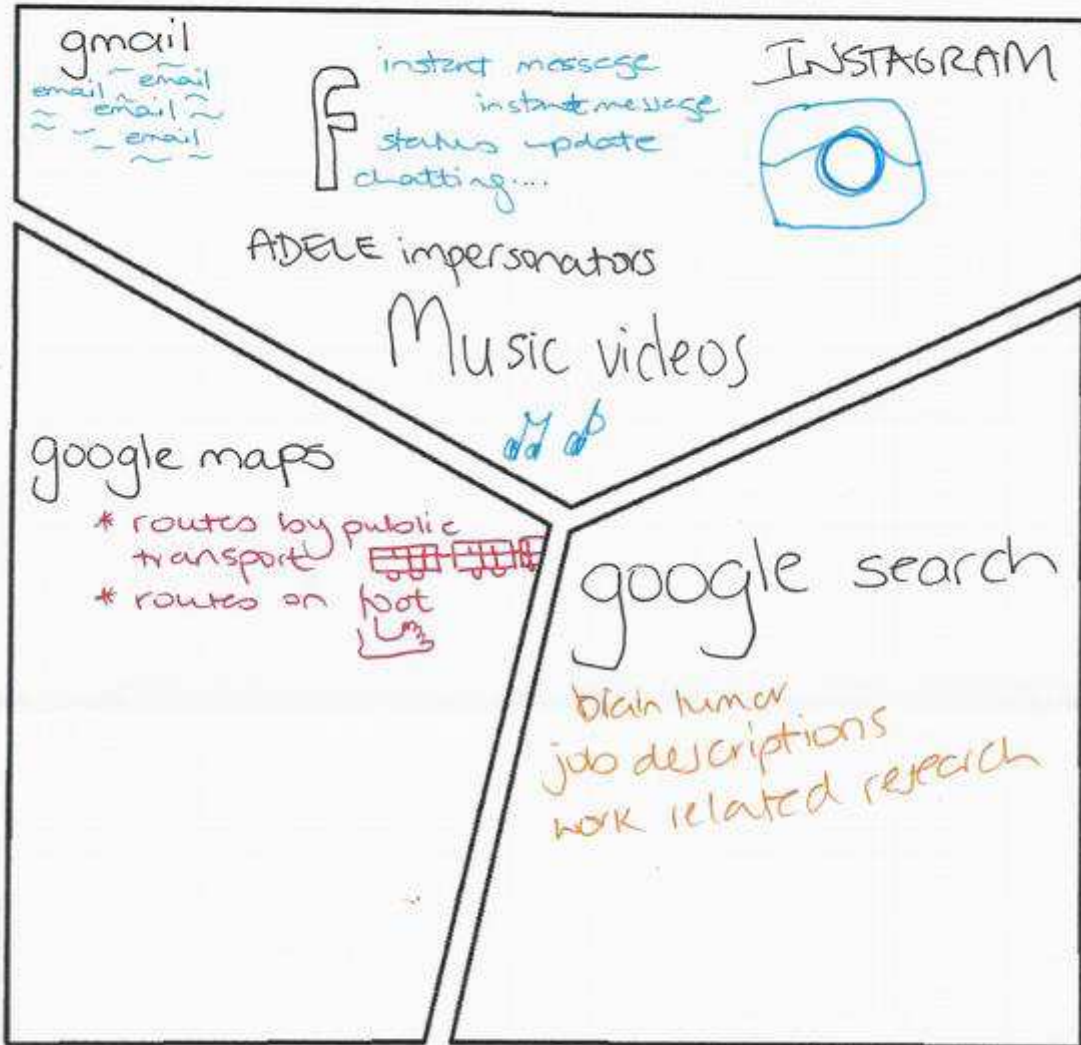 gmail
email
email
email
email
F
instant message
instant message
status update
chatting....
INSTAGRAM
ADELE impersonators
Music videos
google maps
* routes by public
transport
* routes on foot
google search
brain tumor
job descriptions
work related research